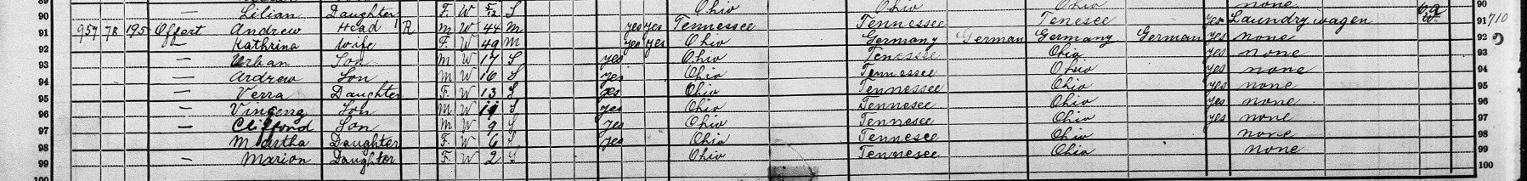 90 — Lilian Daughter F. W S Ohio Ohio Ohio none 90
91 957 78 195 Offort Andrew Head R M W 44 M yes yes Tennessee Tennessee Tenesee yes Laundry wagen 91 710
92 — Kathrina wife F. W 49 M yes yes Ohio Germany German Germany German yes none 92
93 — Urban Son M W 17 S yes Ohio Tenessee Ohio yes none 93
94 — Andrew Son M W 16 S yes Ohio Tennessee Ohio yes none 94
95 — Verra Daughter F. W 13 S yes Ohio Tennessee Ohio yes none 95
96 — Son M W 11 S yes Ohio Tennesee Ohio yes none 96
97 — Clifford Son M W 9 S yes Ohio Tennesee Ohio yes none 97
98 Martha Daughter F. W 6 S yes Ohio Tennesee Ohio none 98
99 — Marion Daughter F W 2 S Ohio Tennesee Ohio none 99
100 100